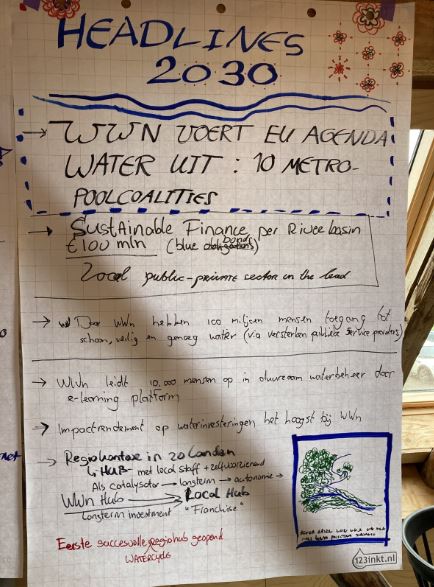 HEADLINES
2030
→ WWN VOERT EU AGENDA
WATER UIT : 10 METRO-
POOLCOALITIES
→ SustAinable Finance per River basin
€100 mln (blue bonds)
Local public-private sector in the lead
→ Door WWN hebben 100 miljoen mensen toegang tot
schoon, veilig en genoeg water (via versterken publieke service providers)
→ WWN leidt 10.000 mensen op in duurzaam waterbeheer door
e-learning platform
→ Impactrendement op waterinvesteringen het hoogst bij WWN
→ Regiokantoren in 20 landen
↳ HUB - met local staff + zelfvoorzienend
Als catalysator → longterm → autonomie →
WWN HUB → Local Hub
Longterm investment "Franchise"
Eerste succesvolle regiohub geopend
WATERCYCLE
123inkt.nl